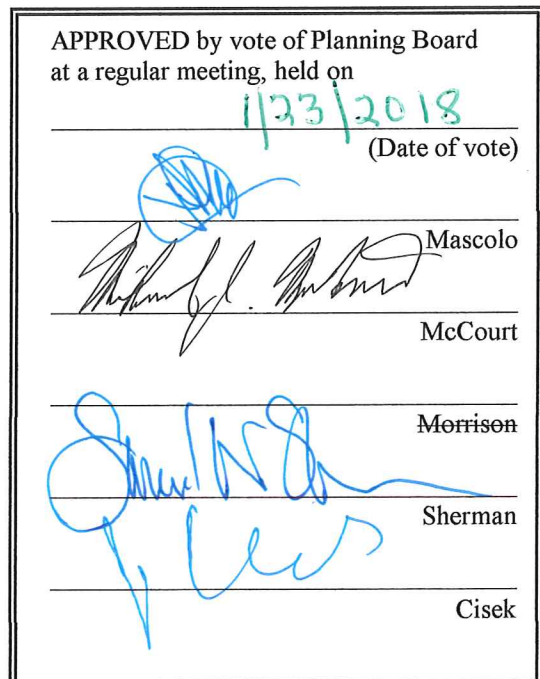 APPROVED by vote of Planning Board
at a regular meeting, held on
1/23/2018
(Date of vote)
Mascolo
McCourt
Morrison
Sherman
Cisek